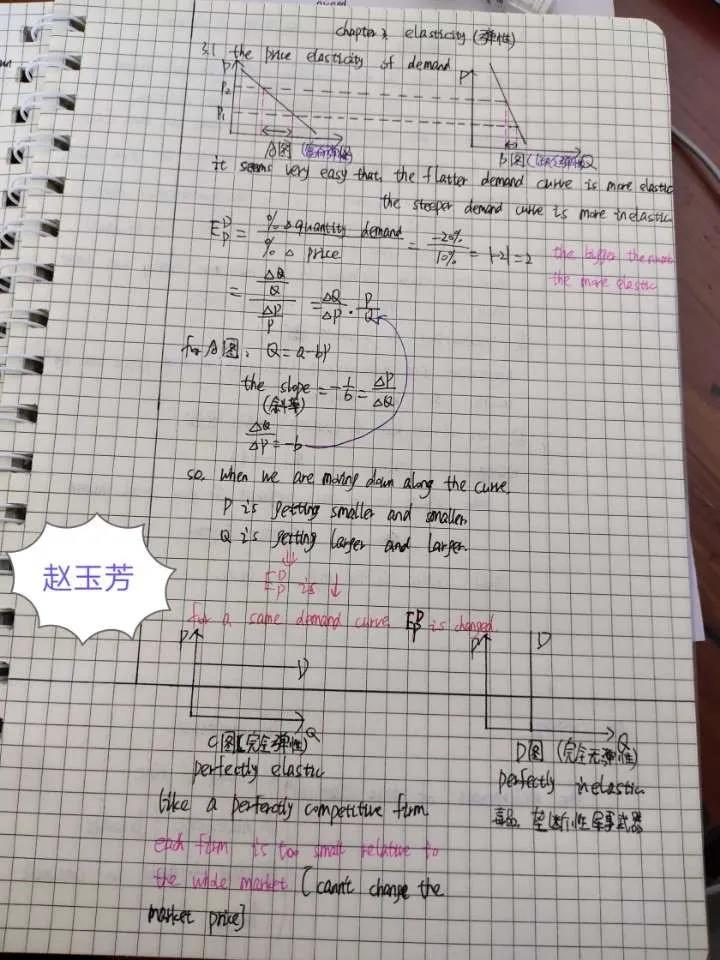 chapter 3 elasticity (弹性)
3.1 the price elasticity of demand
P P
P₂
P₁
A图 (富有弹性) Q B图 Q
it seems very easy that, the flatter demand curve is more elastic
the steeper demand curve is more inelastic
E_P^D = % Δ quantity demand / % Δ price = -20% / 10% = |-2| = 2 the bigger the
the more elastic
= (ΔQ/Q) / (ΔP/P) = ΔQ/ΔP · P/Q
for A图. Q = a-bP
the slope = -1/b = ΔP/ΔQ
(斜率)
ΔQ/ΔP = -b
so, when we are moving down along the curve.
P is getting smaller and smaller.
Q is getting larger and larger.
⇓
E_P^D is ↓
赵玉芳
for a same demand curve. E_P^D is changed.
P D P D
Q Q
C图 (完全弹性) D图 (完全无弹性)
perfectly elastic perfectly inelastic
like a perferctly competitive firm 毒品. 垄断性军事武器
each firm is too small relative to
the whole market [cann't change the
market price]